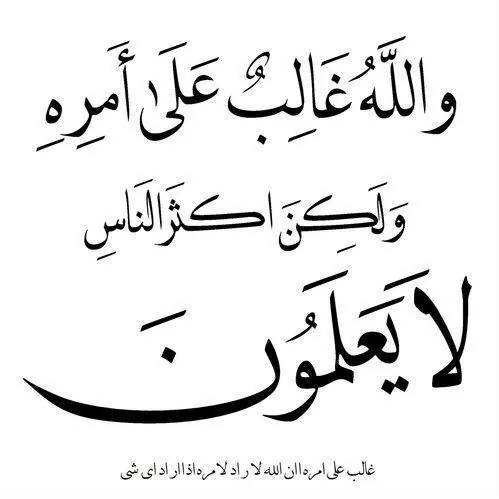 والله غَالِبٌ عَلَىٰ أَمرِهِ
وَلَكِنَ اكثَرَ النَاسِ
لا يَعلَمُونَ
غالب على امره ان الله لا راد لامره اذا اراد اى شى